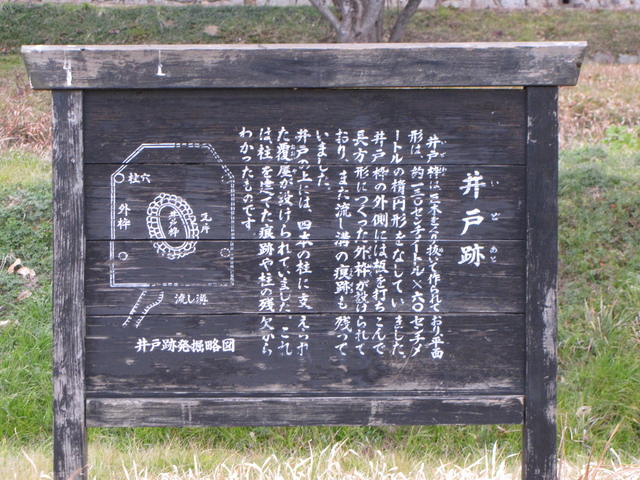 井戸跡
いどあと
井戸枠は三本をくり抜いて作られており平面
形は、約一三〇センチイートル×六〇センチメ
ートルの楕円形をなしていました。
井戸枠の外側には板を打ちこんで
長方形につくった外枠が設けられて
おり、また流し溝の痕跡も残って
いました。
井戸の上には、四本の柱に支えられ
た覆屋が設けられていました。これ
は、柱を建てた痕跡や柱の残欠から
わかったものです
柱穴
外枠
井戸枠
流し溝
井戸跡発掘略図